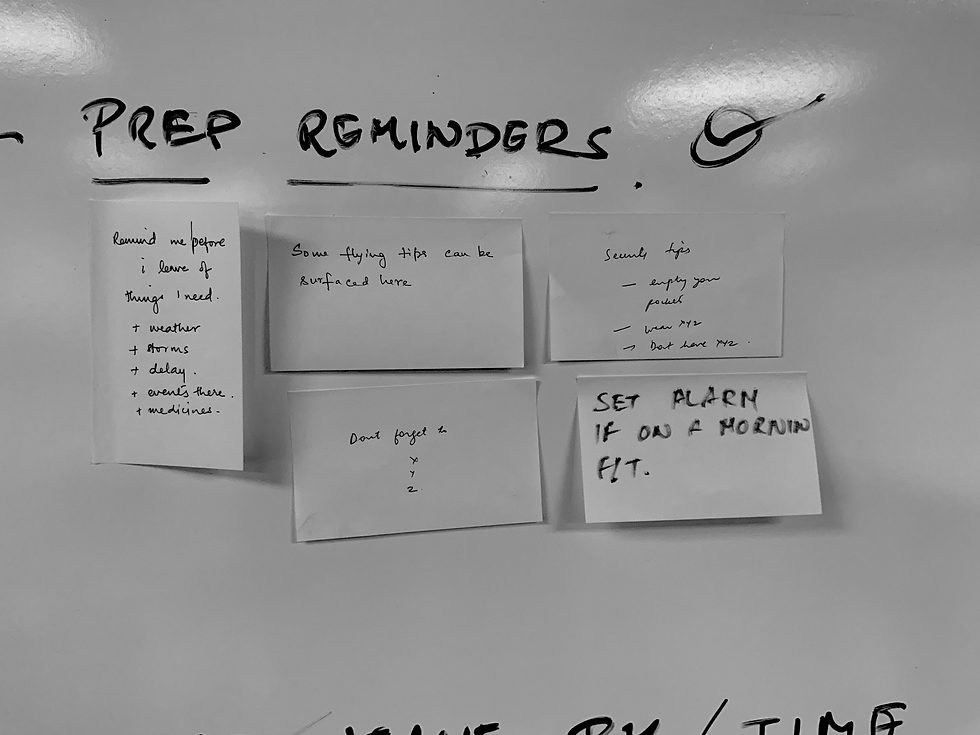 - PREP REMINDERS.
Remind me before
i leave of
things I need.
+ weather
+ storms
+ delay.
+ events there.
+ medicines-
Some flying tips can be
surfaced here
tips
- empty your
pocket
- wear XYZ
- Dont have XYZ.
Dont forget to
X
Y
Z
SET ALARM
IF ON A MORNIN
F/T.
LEAVE BY / TIME